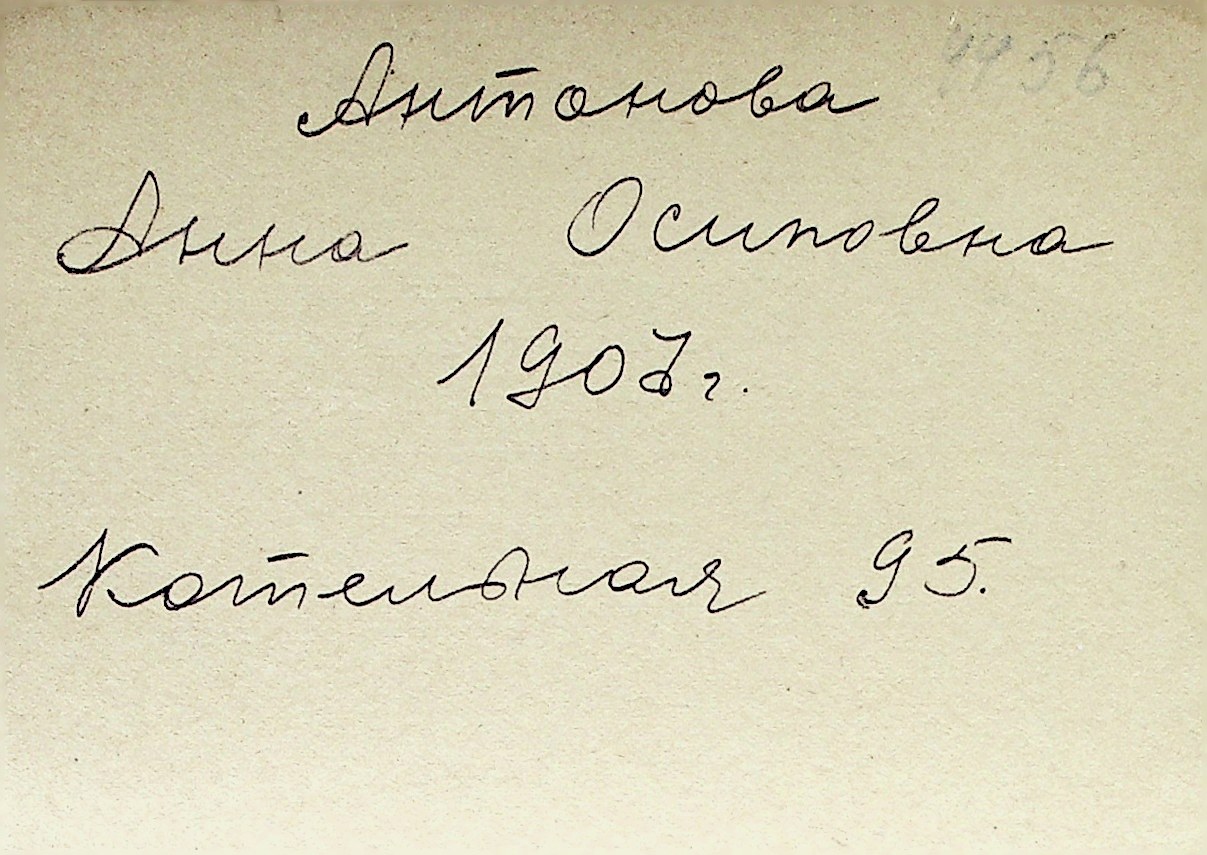 Антонова
Анна Осиповна
1907г.
Котельная 95.